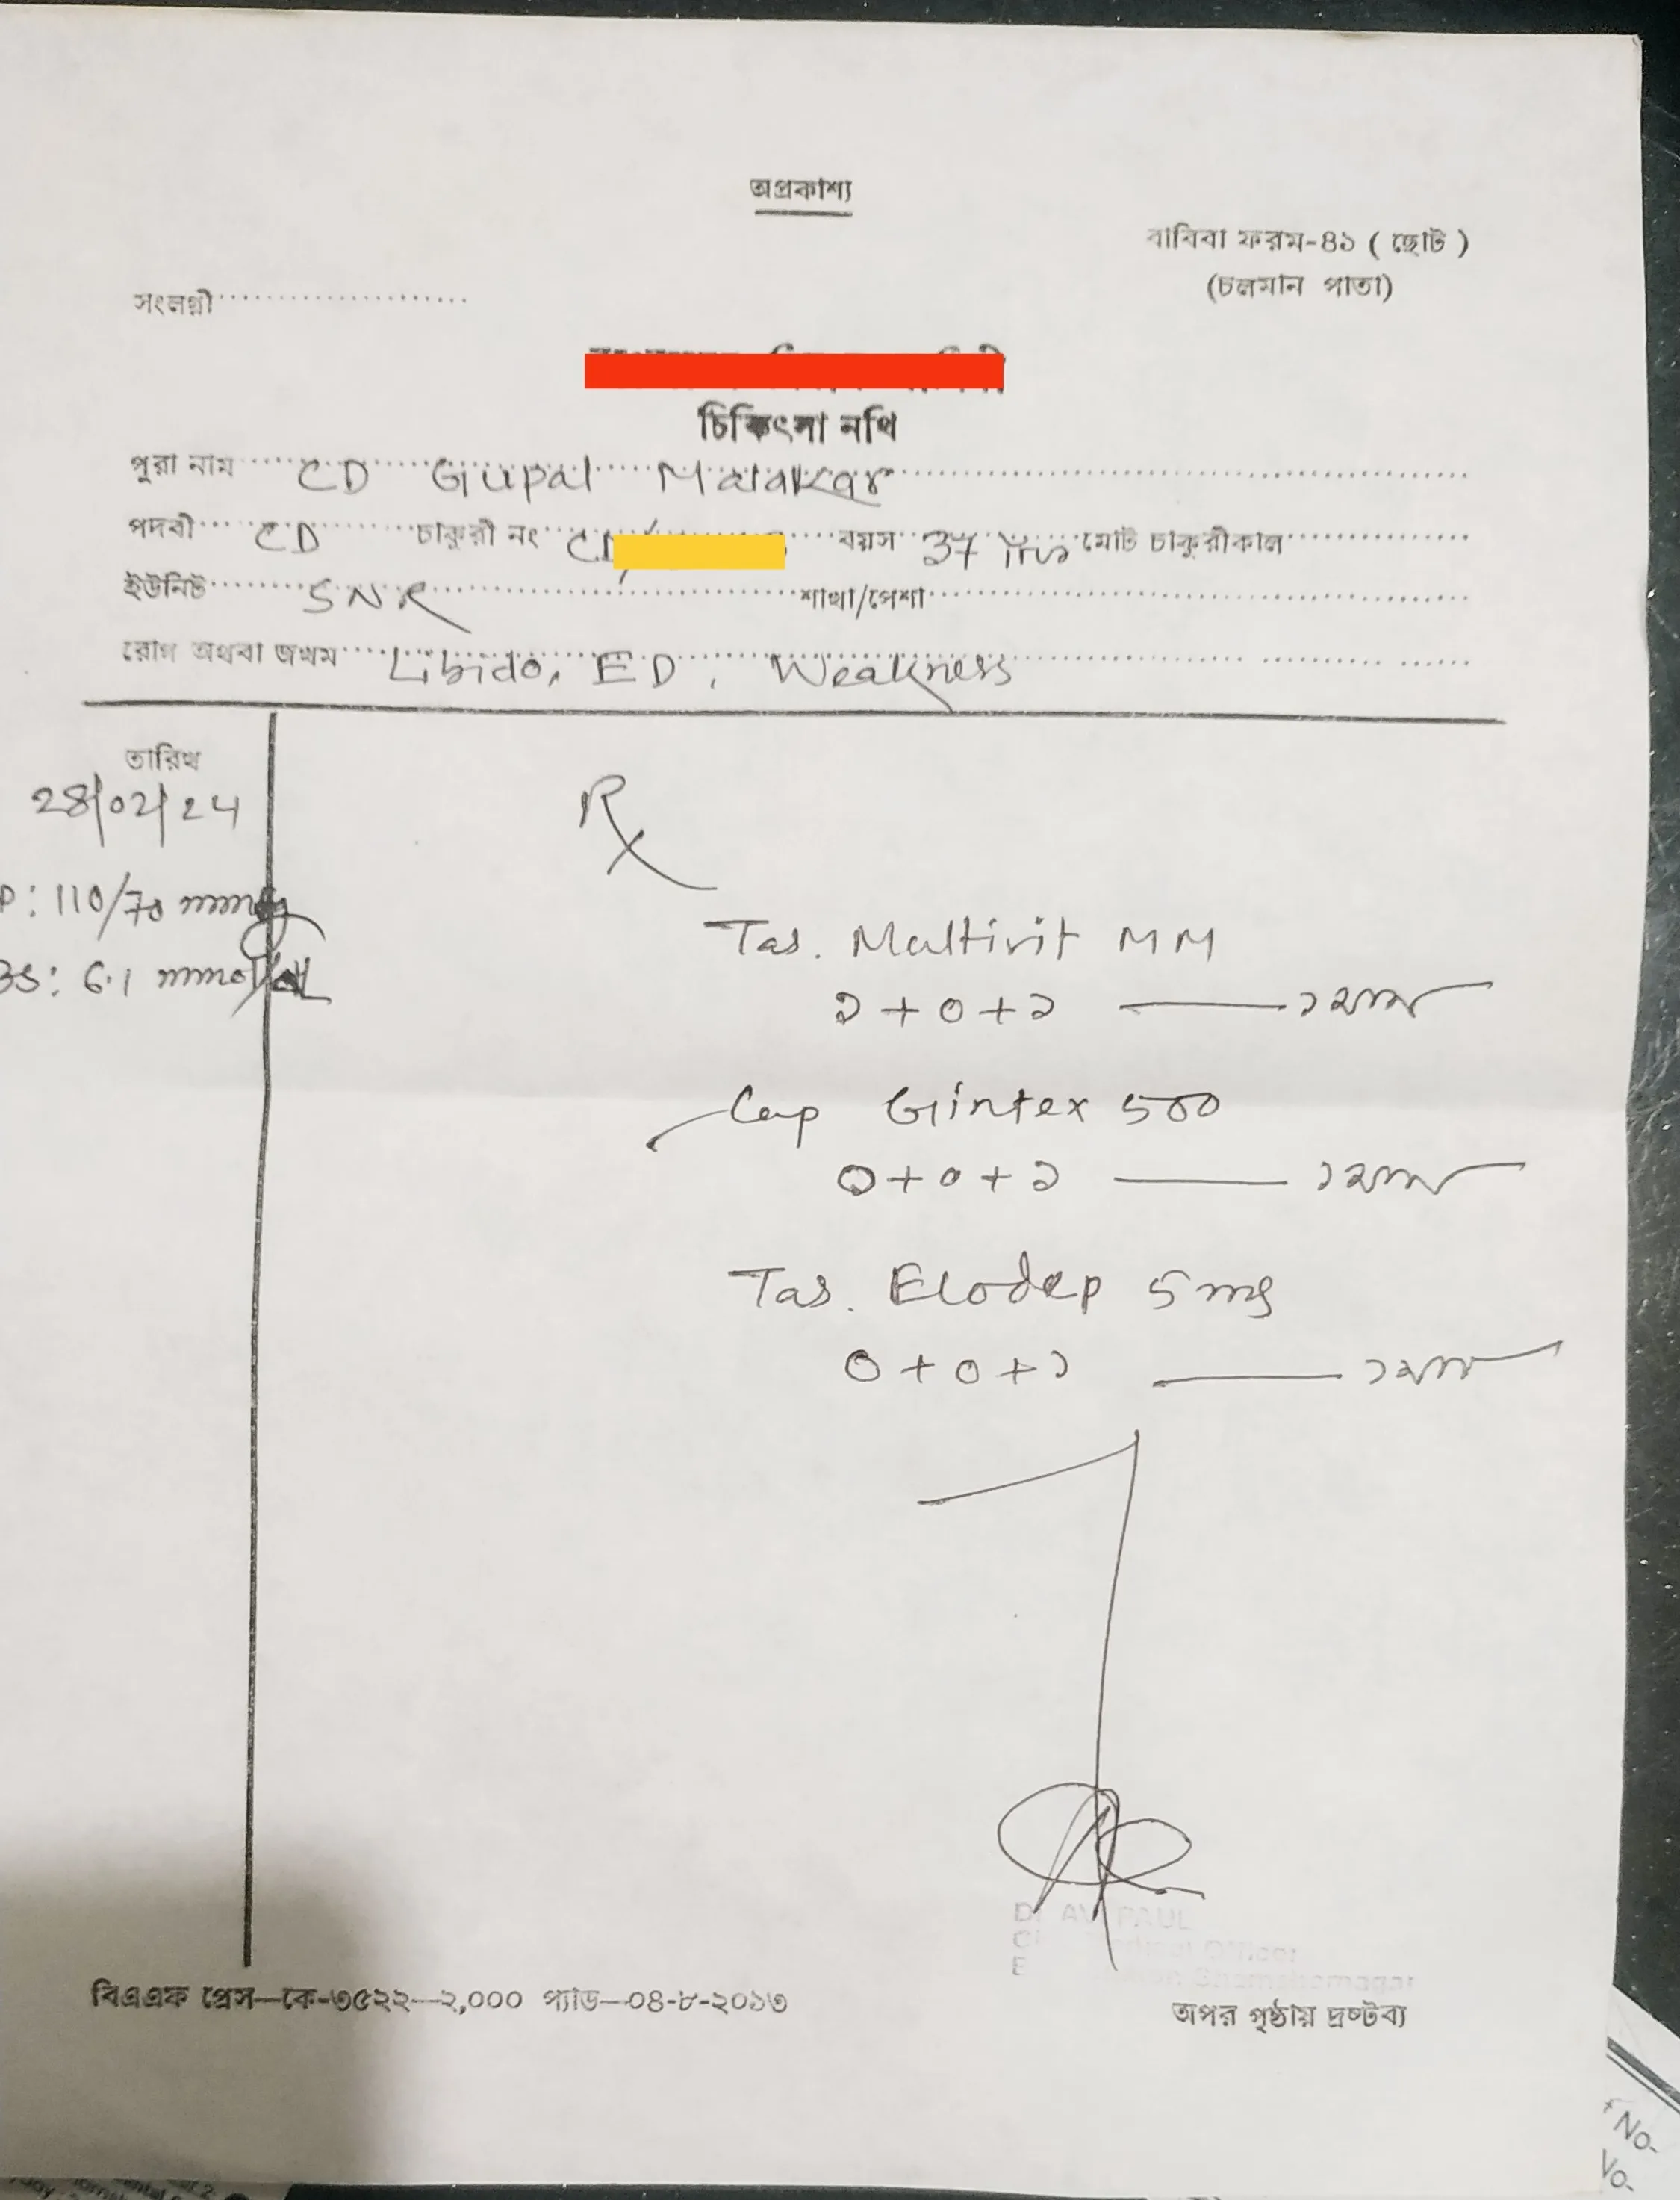 অপ্রকাশ্য
বাবিবা ফরম-৪১ ( ছোট )
(চলমান পাতা)
সংলগ্নী
চিকিৎসা নথি
পুরা নাম CD Gupal Malakar
পদবী CD চাকুরী নং CD বয়স 37 Yrs মোট চাকুরীকাল
ইউনিট SNR শাখা/পেশা
রোগ অথবা জখম Libido, ED, Weakness
তারিখ
28/02/24
P: 110/70 mmHg
BS: 6.1 mmol/L
Rx
Tab. Multivit MM
১ + ০ + ১ — ১ মাস
Cap Gintex 500
০ + ০ + ১ — ১ মাস
Tab. Elodep 5 mg
০ + ০ + ১ — ১ মাস
PAUL
Officer
Shamshernagar
বিএএফ প্রেস—কে-৩৫২২—২,০০০ প্যাড—০৪-৮-২০১৩
অপর পৃষ্ঠায় দ্রষ্টব্য
No-
No-